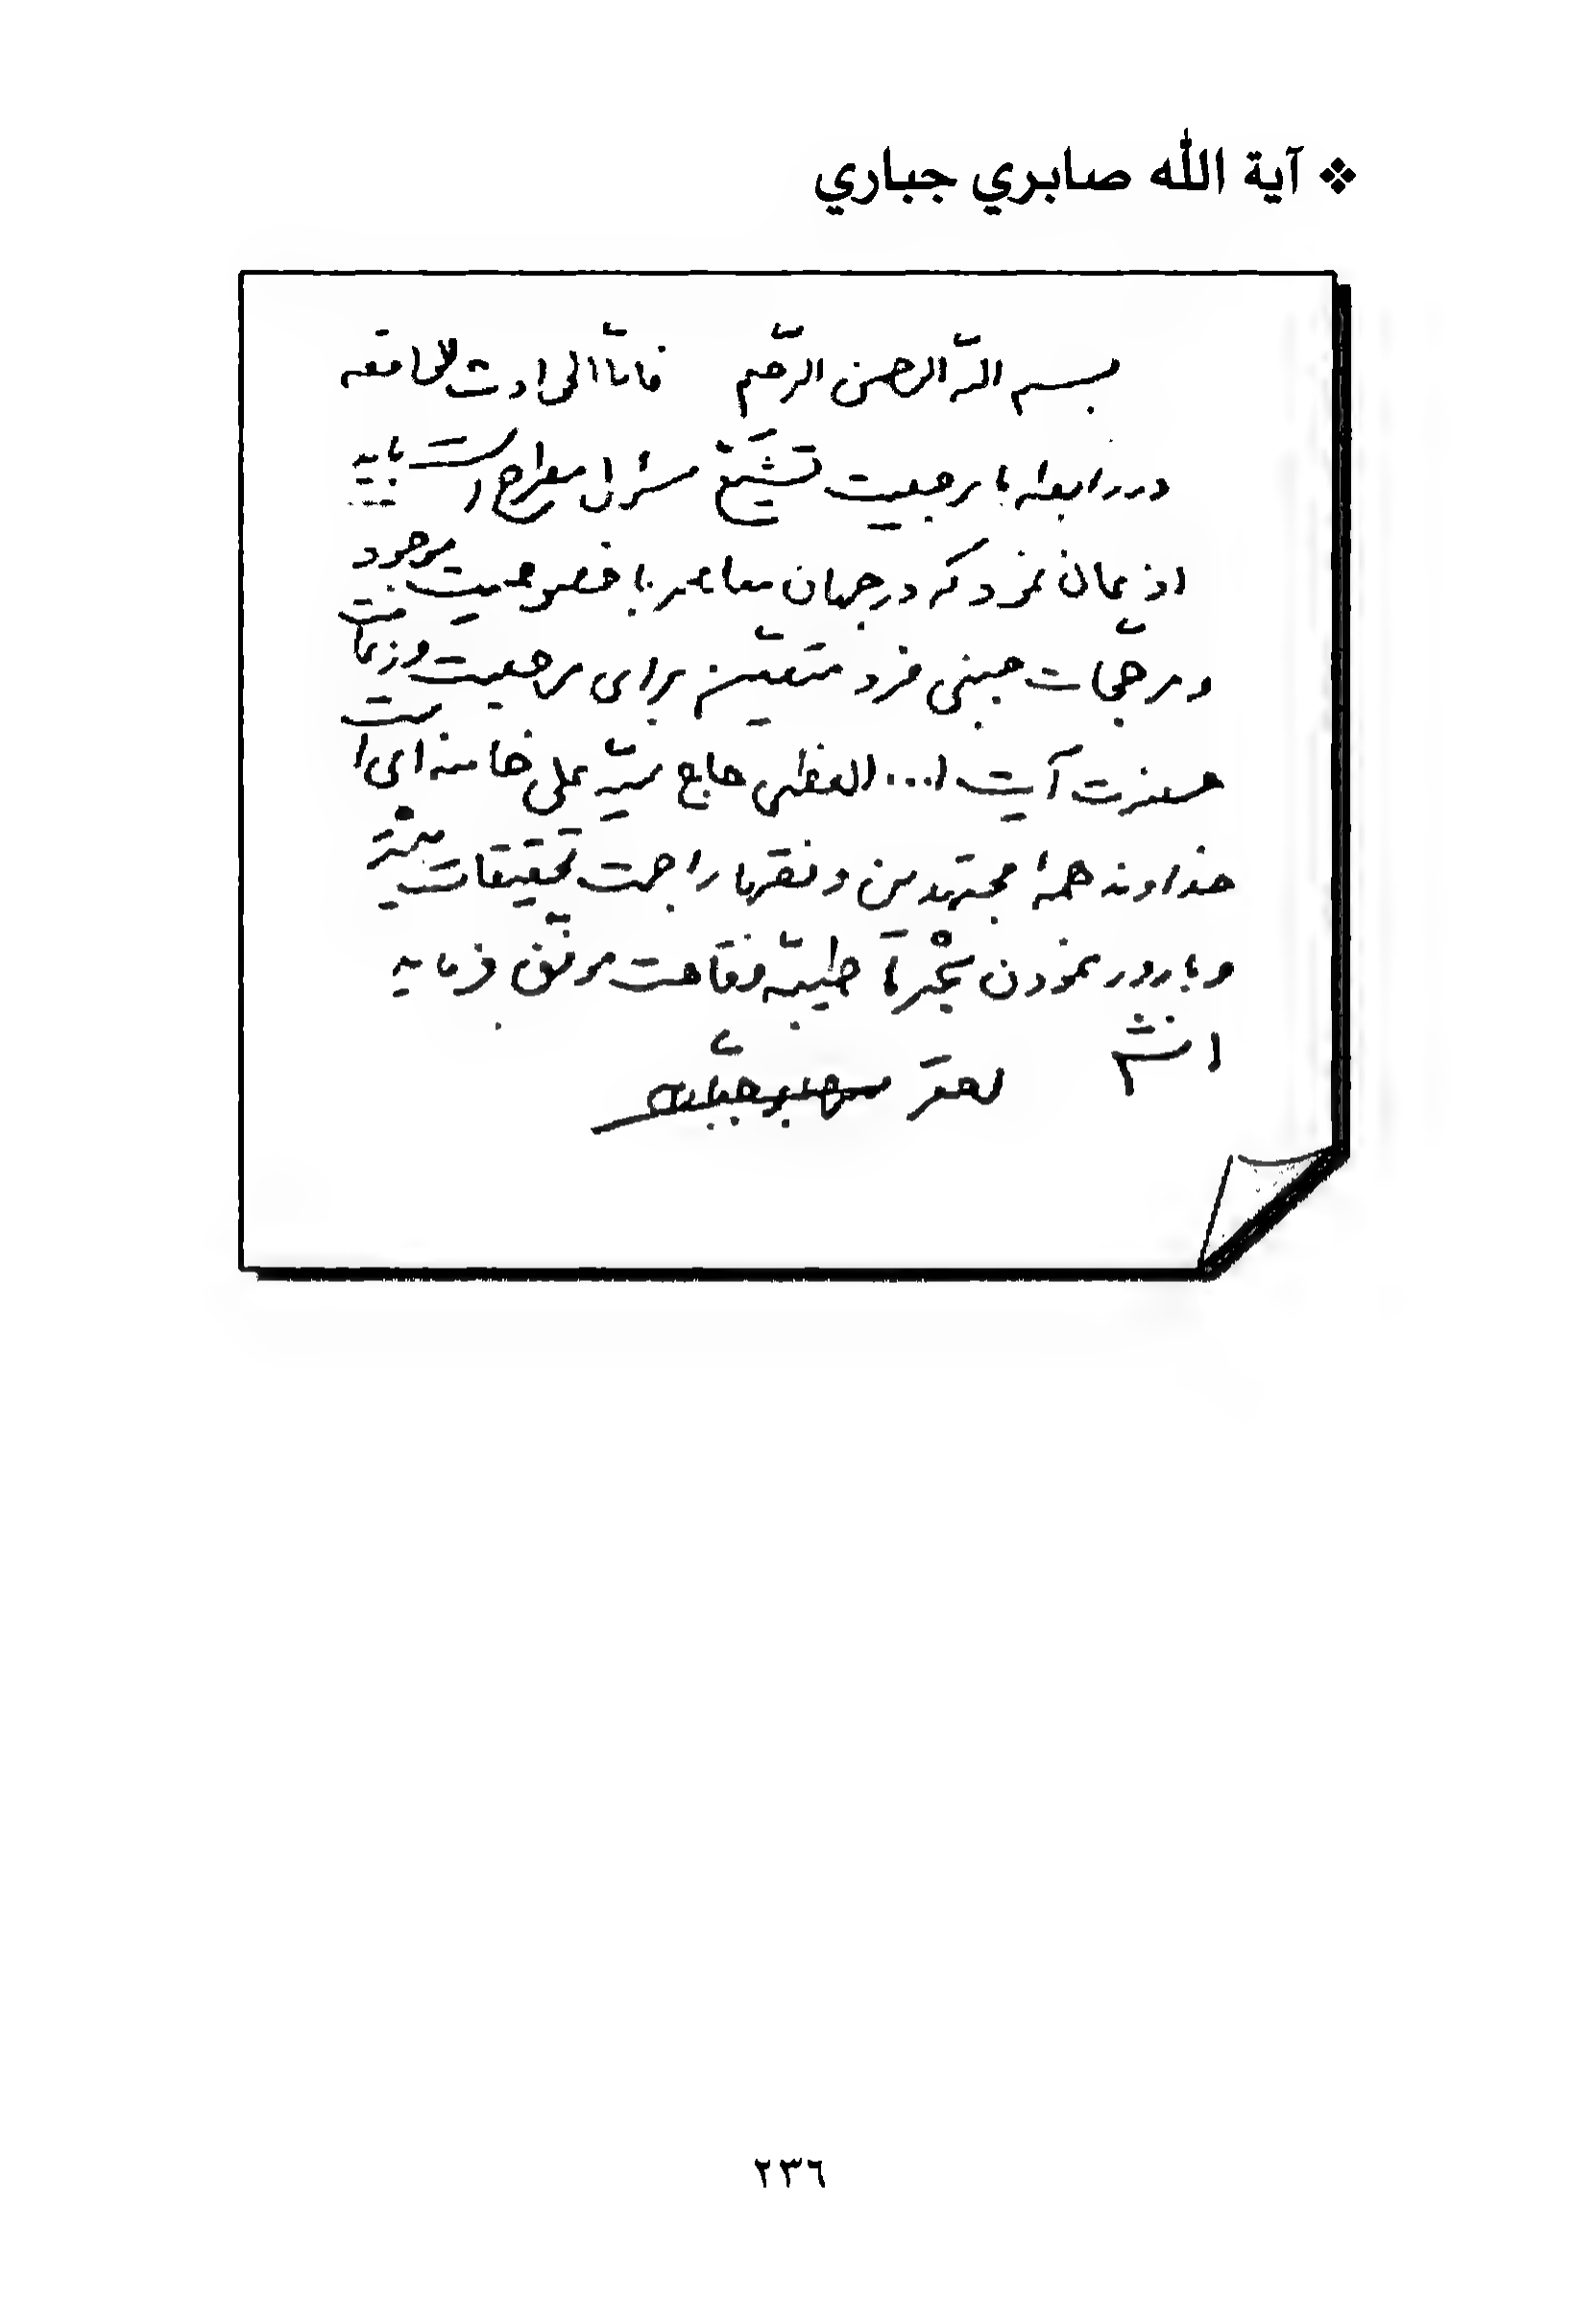 ❖ آية الله صابري جباري
بسم الله الرحمن الرحيم فامّا الحوادث الواقعه
در رابطه با مرجعيت تشيّع سئوال مطرح است بايد
اذعان نمود که در جهان معاصر با خصوصيت موجود
و مرجّحات حبيبی فرد متعيّن برای مرجعيت و زعامت
حضرت آيت ا... العظمی حاج سيّد علی خامنه ای است
خداوند همه مجتهدين و فقها را جهت تحقيقات بيشتر
و بارور نمودن شجرهٔ طيبّه فقاهت موفق فرمايد
احقر صابری جبّاری
٢٣٦